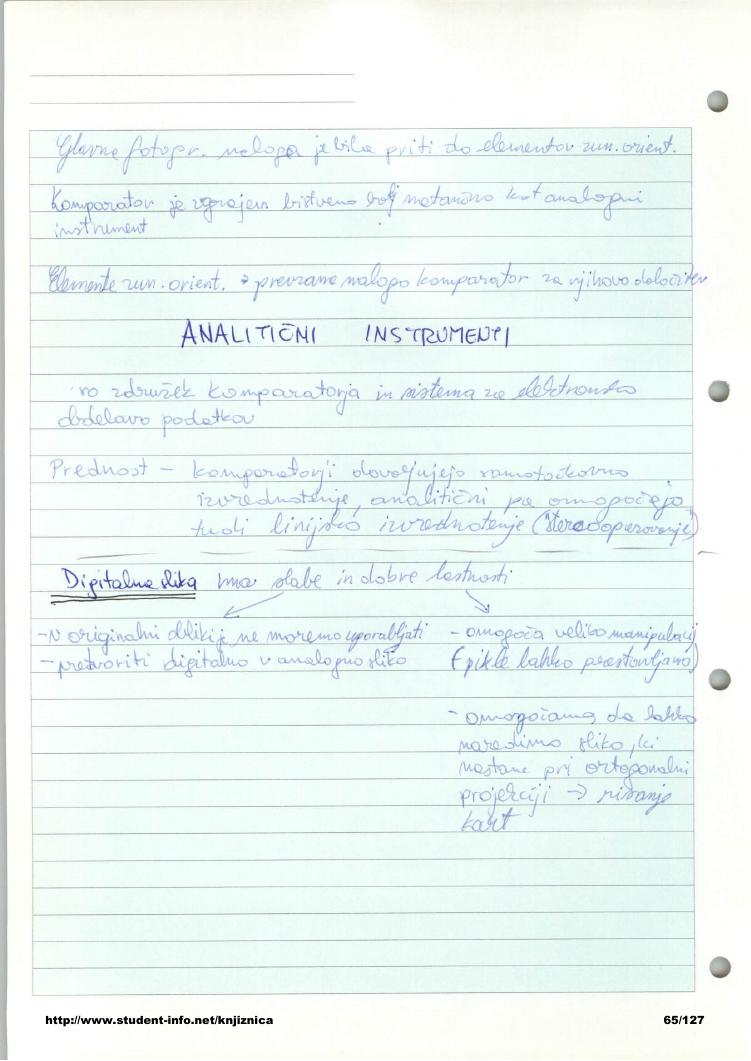 Glavna fotogr. naloga je bila priti do elementov zun. orient.
Komparator je zgrajen bistveno bolj natančno kot analogni
instrument
Elemente zun. orient. → prevzame nalogo komparator za njihovo določitev
ANALITIČNI INSTRUMENTI
so združek komparatorja in sistema za elektronsko
obdelavo podatkov
Prednost – komparatorji dovoljujejo samo točkovno
izvrednotenje, analitični pa omogočajo
tudi linijsko izvrednotenje
Digitalna slika ima slabe in dobre lastnosti
- v originalni obliki je ne moremo uporabljati
- pretvoriti digitalno v analogno sliko
- omogoča veliko manipulacij
(pikle lahko prestavljamo)
- omogočamo, da lahko
naredimo sliko, ki
nastane pri ortogonalni
projekciji → risanje
kart
http://www.student-info.net/knjiznica
65/127